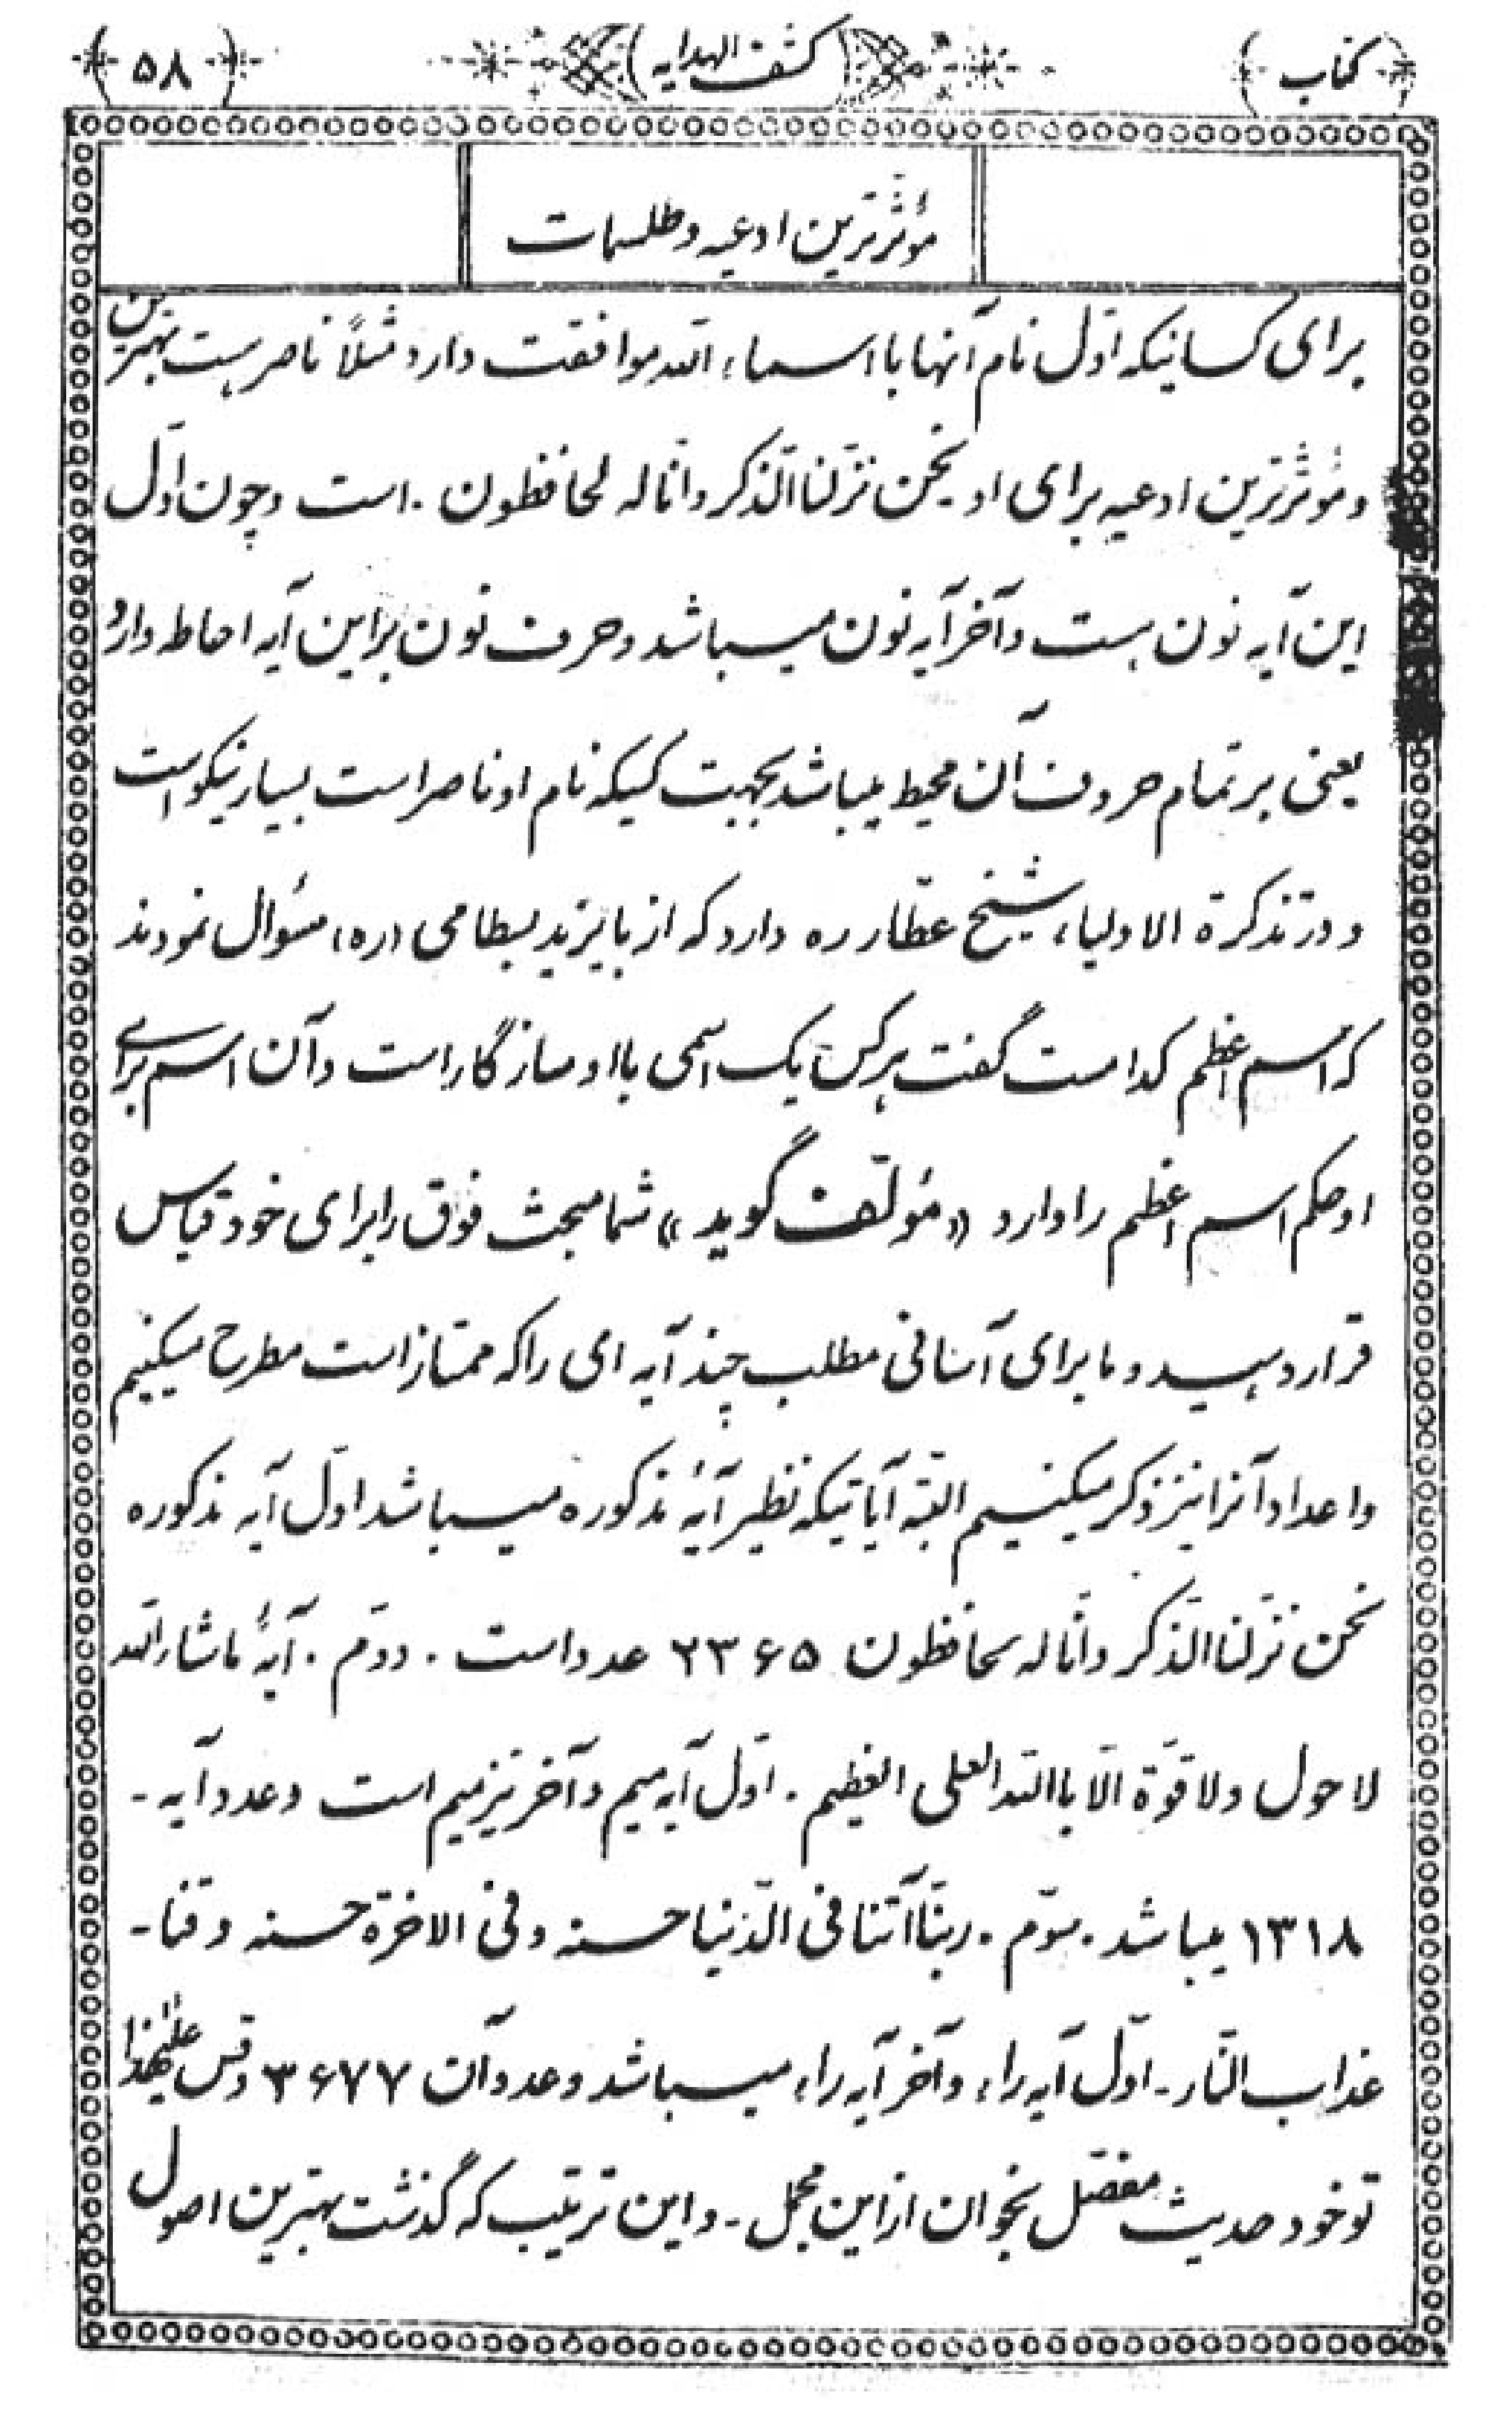 کتاب (کشف الهدایه) ۵۸
مؤثّرترین ادعیه و طلسمات
برای کسانیکه اوّل نام آنها با اسماء الله موافقت دارد مثلاً ناصر هست بهترین
و مؤثّرترین ادعیه برای او نحن نزّلنا الذّکر و انّا له لحافظون . است و چون اوّل
این آیه نون هست و آخر آیه نون میباشد و حرف نون بر این آیه احاطه دارد
یعنی بر تمام حروف آن محیط میباشد بجهت کسیکه نام او ناصر است بسیار نیکو است
و در تذکرة الاولیاء شیخ عطّار ره دارد که از بایزید بسطامی (ره) سئوال نمودند
که اسم اعظم کدامست گفت هر کس یک اسمی با او سازگار است و آن اسم برای
او حکم اسم اعظم را دارد «مؤلّف گوید» شما مبحث فوق را برای خود قیاس
قرار دهید و ما برای آسانی مطلب چند آیه ای را که ممتاز است مطرح میکنیم
و اعداد آنرا نیز ذکر میکنیم البتّه آیاتیکه نظیر آیهٔ مذکوره میباشد اوّل آیه مذکوره
نحن نزّلنا الذّکر و انّا له لحافظون ۲۳۶۵ عدد است . دوّم . آیهٔ ماشاء الله
لا حول و لا قوّة الّا باالله العلی العظیم . اوّل آیه میم و آخر نیز میم است و عدد آیه -
۱۳۱۸ میباشد . سوّم . ربنّا آتنا فی الدّنیا حسنه و فی الاخرة حسنه و قنا -
عذاب النّار - اوّل آیه راء و آخر آیه راء میباشد و عدد آن ۳۶۷۷ و قس علیهذا
تو خود حدیث مفصّل بخوان از این مجمل - و این ترتیب که گذشت بهترین اصول